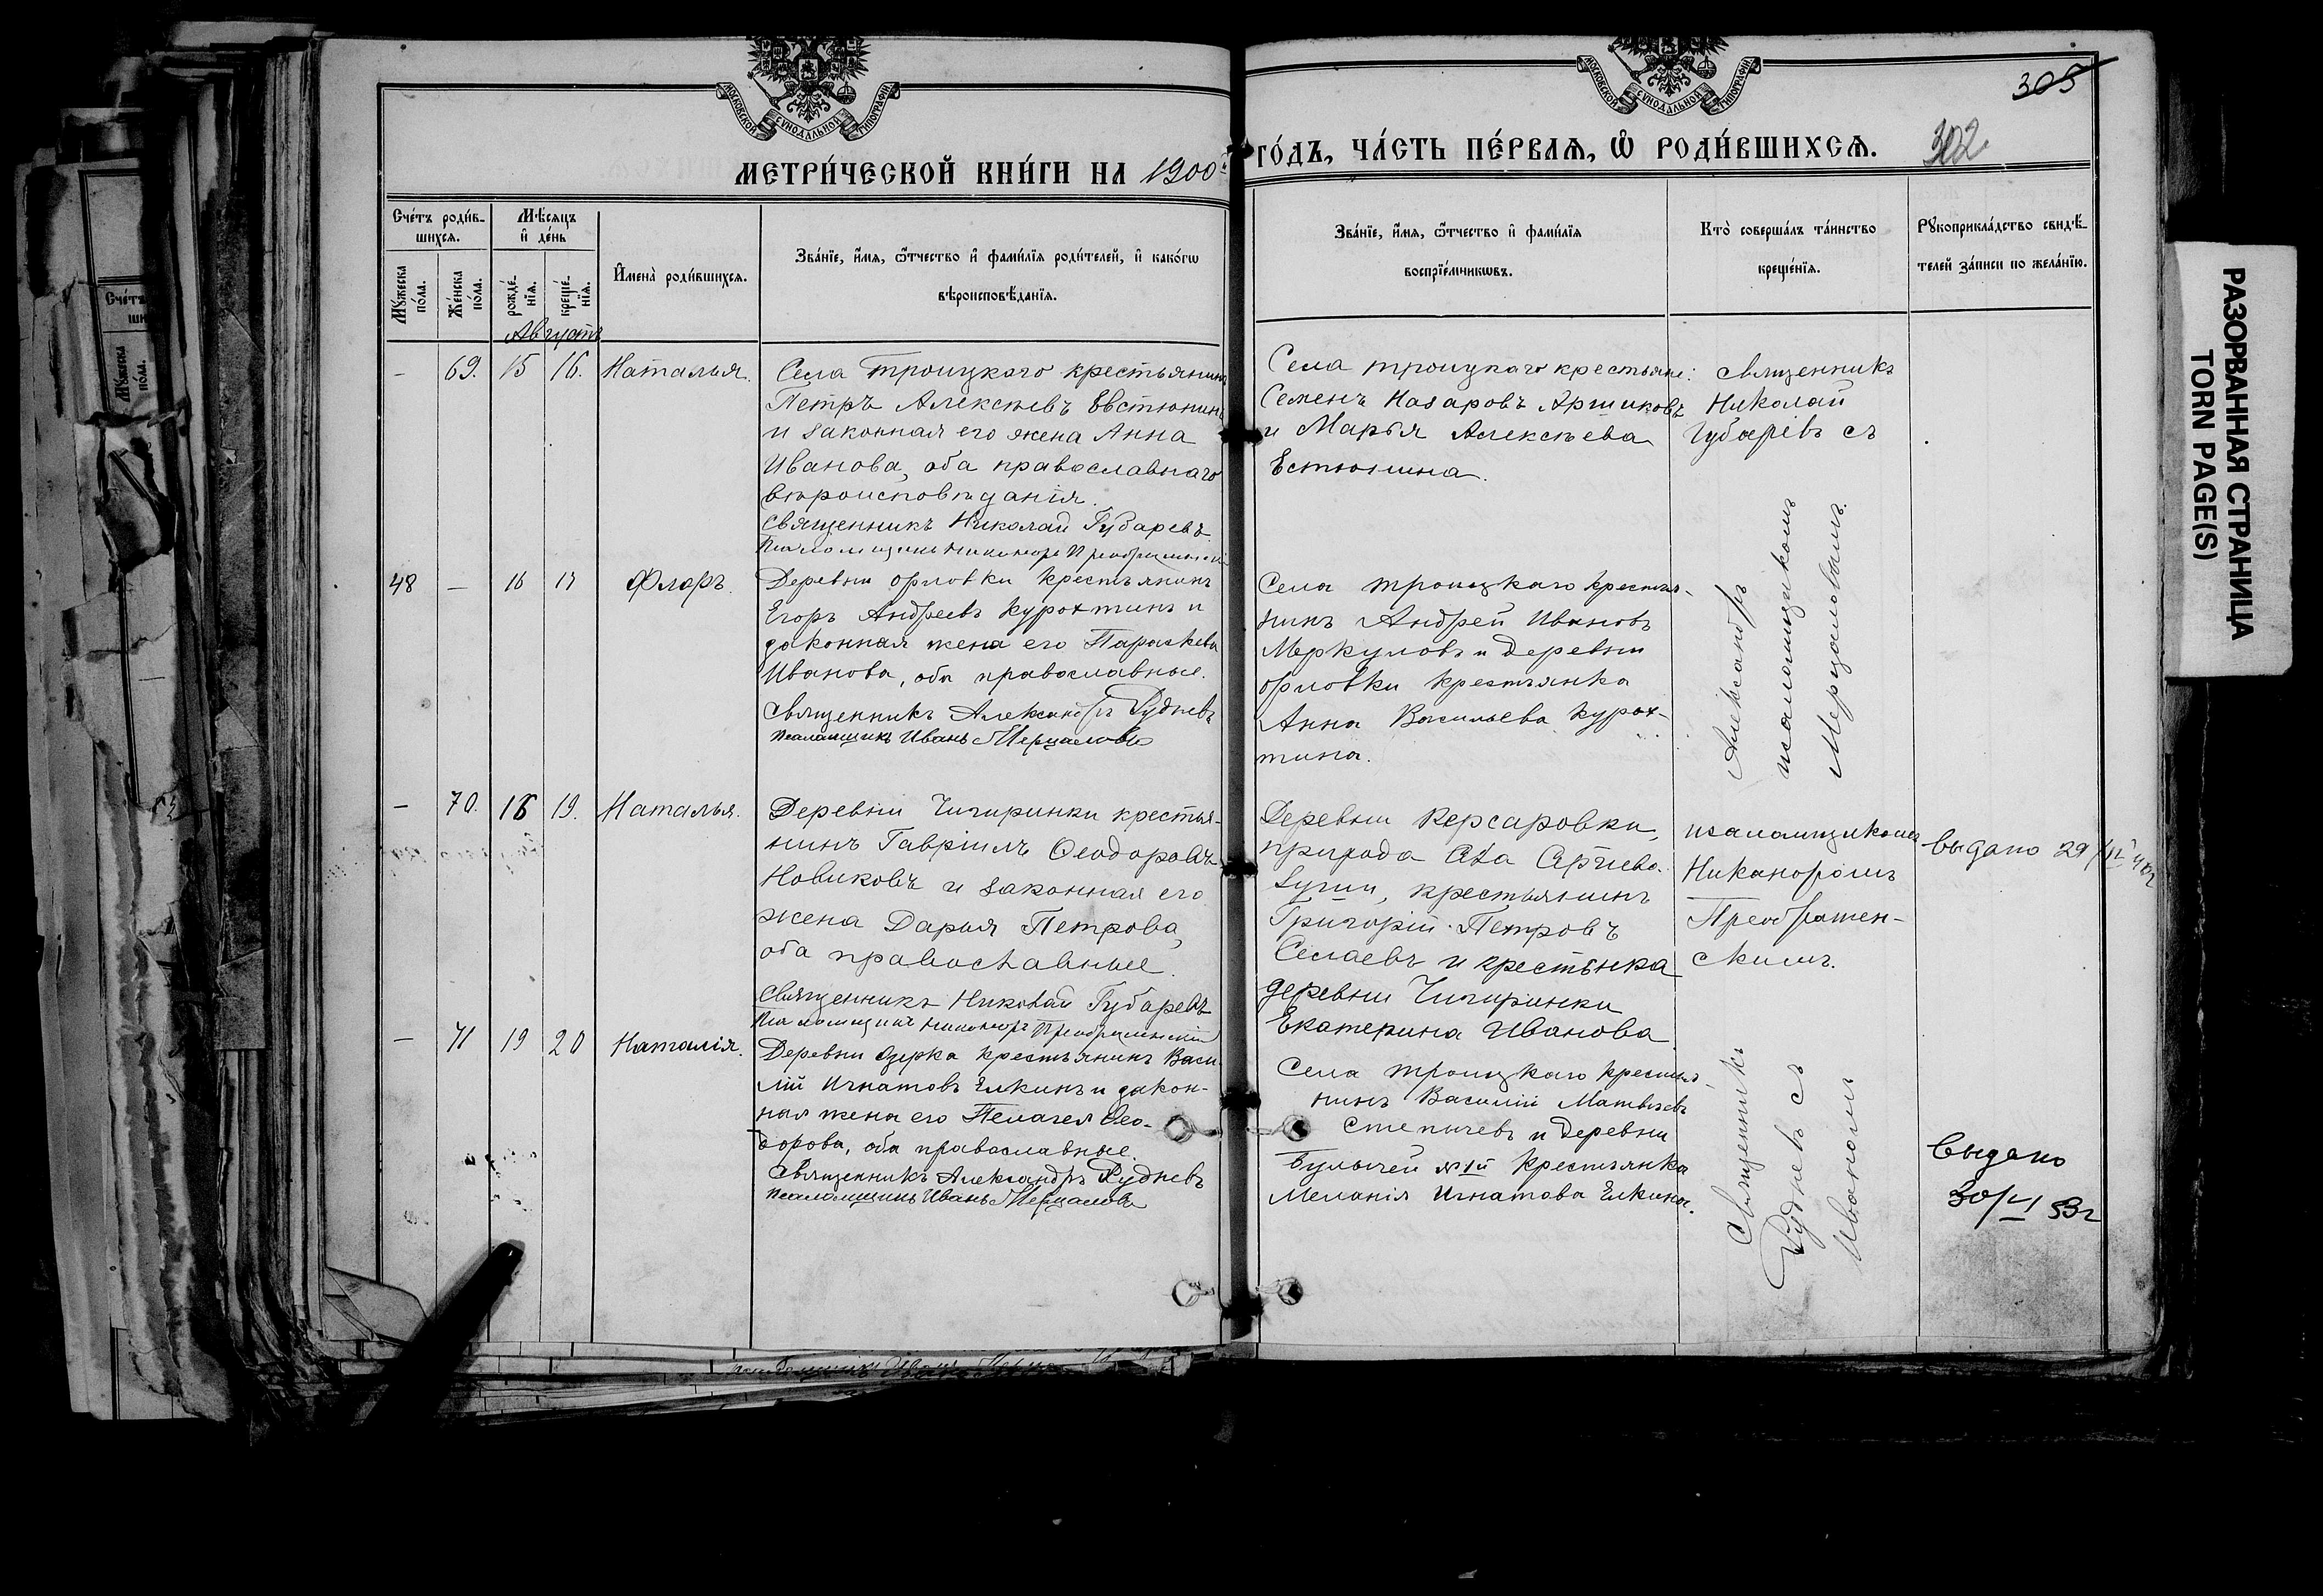 МОСКОВСКОЙ СѴНОДАЛЬНОЙ ТИПОГРАФІИ
МОСКОВСКОЙ СѴНОДАЛЬНОЙ ТИПОГРАФІИ
305
302
МЕТРИ́ЧЕСКОЙ КНИ́ГИ НА 1900
ГО́ДЪ, ЧА́СТЬ ПЕ́РВАѦ, Ѽ РОДИ́ВШИХСѦ.
Сче́тъ роди́в-
шихсѧ.
Мꙋ́жеска по́ла.
Же́нска по́ла.
Мѣ́сѧцъ
и҆ де́нь
рожде́-
нїѧ.
креще́-
нїѧ.
И҆мена̀ роди́вшихсѧ.
Зва́нїе, и҆́мѧ, ѻ҆́тчество и҆ фами́лїѧ роди́телей, и҆ како́гѡ
вѣроисповѣ́данїѧ.
Зва́нїе, и҆́мѧ, ѻ҆́тчество и҆ фами́лїѧ
воспрїе́мникѡвъ.
Кто̀ соверша́лъ та́инство
креще́нїѧ.
Рꙋкоприкла́дство свидѣ́-
телей за́писи по жела́нїю.
Августъ
- 69. 15 16. Наталья.
Села Троицкаго крестьянинъ
Петръ Алексѣевъ Евстюнинъ
и законная его жена Анна
Иванова, оба православнаго
вѣроисповѣданія.
Священникъ Николай Губаревъ
Псаломщикъ Никаноръ Преображенскій
Села Троицкаго крестьяне:
Семенъ Назаровъ Аршиковъ
и Марья Алексѣева
Естюнина.
Священникъ
Николай
Губаревъ съ
48 — 16 17 Флоръ.
Деревни Орловки крестьянинъ
Егоръ Андреевъ Курохтинъ и
законная жена его Параскева
Иванова, оба православные.
Священникъ Александръ Рудневъ
Псаломщикъ Иванъ Мерцаловъ
Села Троицкаго крестья-
нинъ Андрей Ивановъ
Меркуловъ и деревни
Орловки крестьянка
Анна Васильева Курох-
тина.
Александръ
псаломщикомъ
Мерцаловымъ.
- 70. 16 19. Наталья.
Деревни Чичиринки крестья-
нинъ Гавріилъ Ѳеодоровъ
Новиковъ и законная его
жена Дарья Петрова,
оба православные.
Священникъ Николай Губаревъ
Псаломщикъ Никаноръ Преображенскій
Деревни Керсаровки,
прихода села
крестьянинъ
Григорій Петровъ
и крестьянка
деревни Чичиринки
Екатерина Иванова
псаломщикомъ
Никаноромъ
Преображен-
скимъ.
выдано 29
- 71 19 20 Наталія.
Деревни Озерка крестьянинъ Васи-
лій Игнатовъ Елкинъ и закон-
ная жена его Пелагея Ѳео-
дорова, оба православные.
Священникъ Александръ Рудневъ
Псаломщикъ Иванъ Мерцаловъ
Села Троицкаго крестья-
нинъ Василій Матвѣевъ
Степичевъ и деревни
Булычей №1й крестьянка
Меланія Игнатова Елкина.
Священникъ
Рудневъ съ
Иваномъ
Выдано
30/VI 33г
РАЗОРВАННАЯ СТРАНИЦА
TORN PAGE(S)